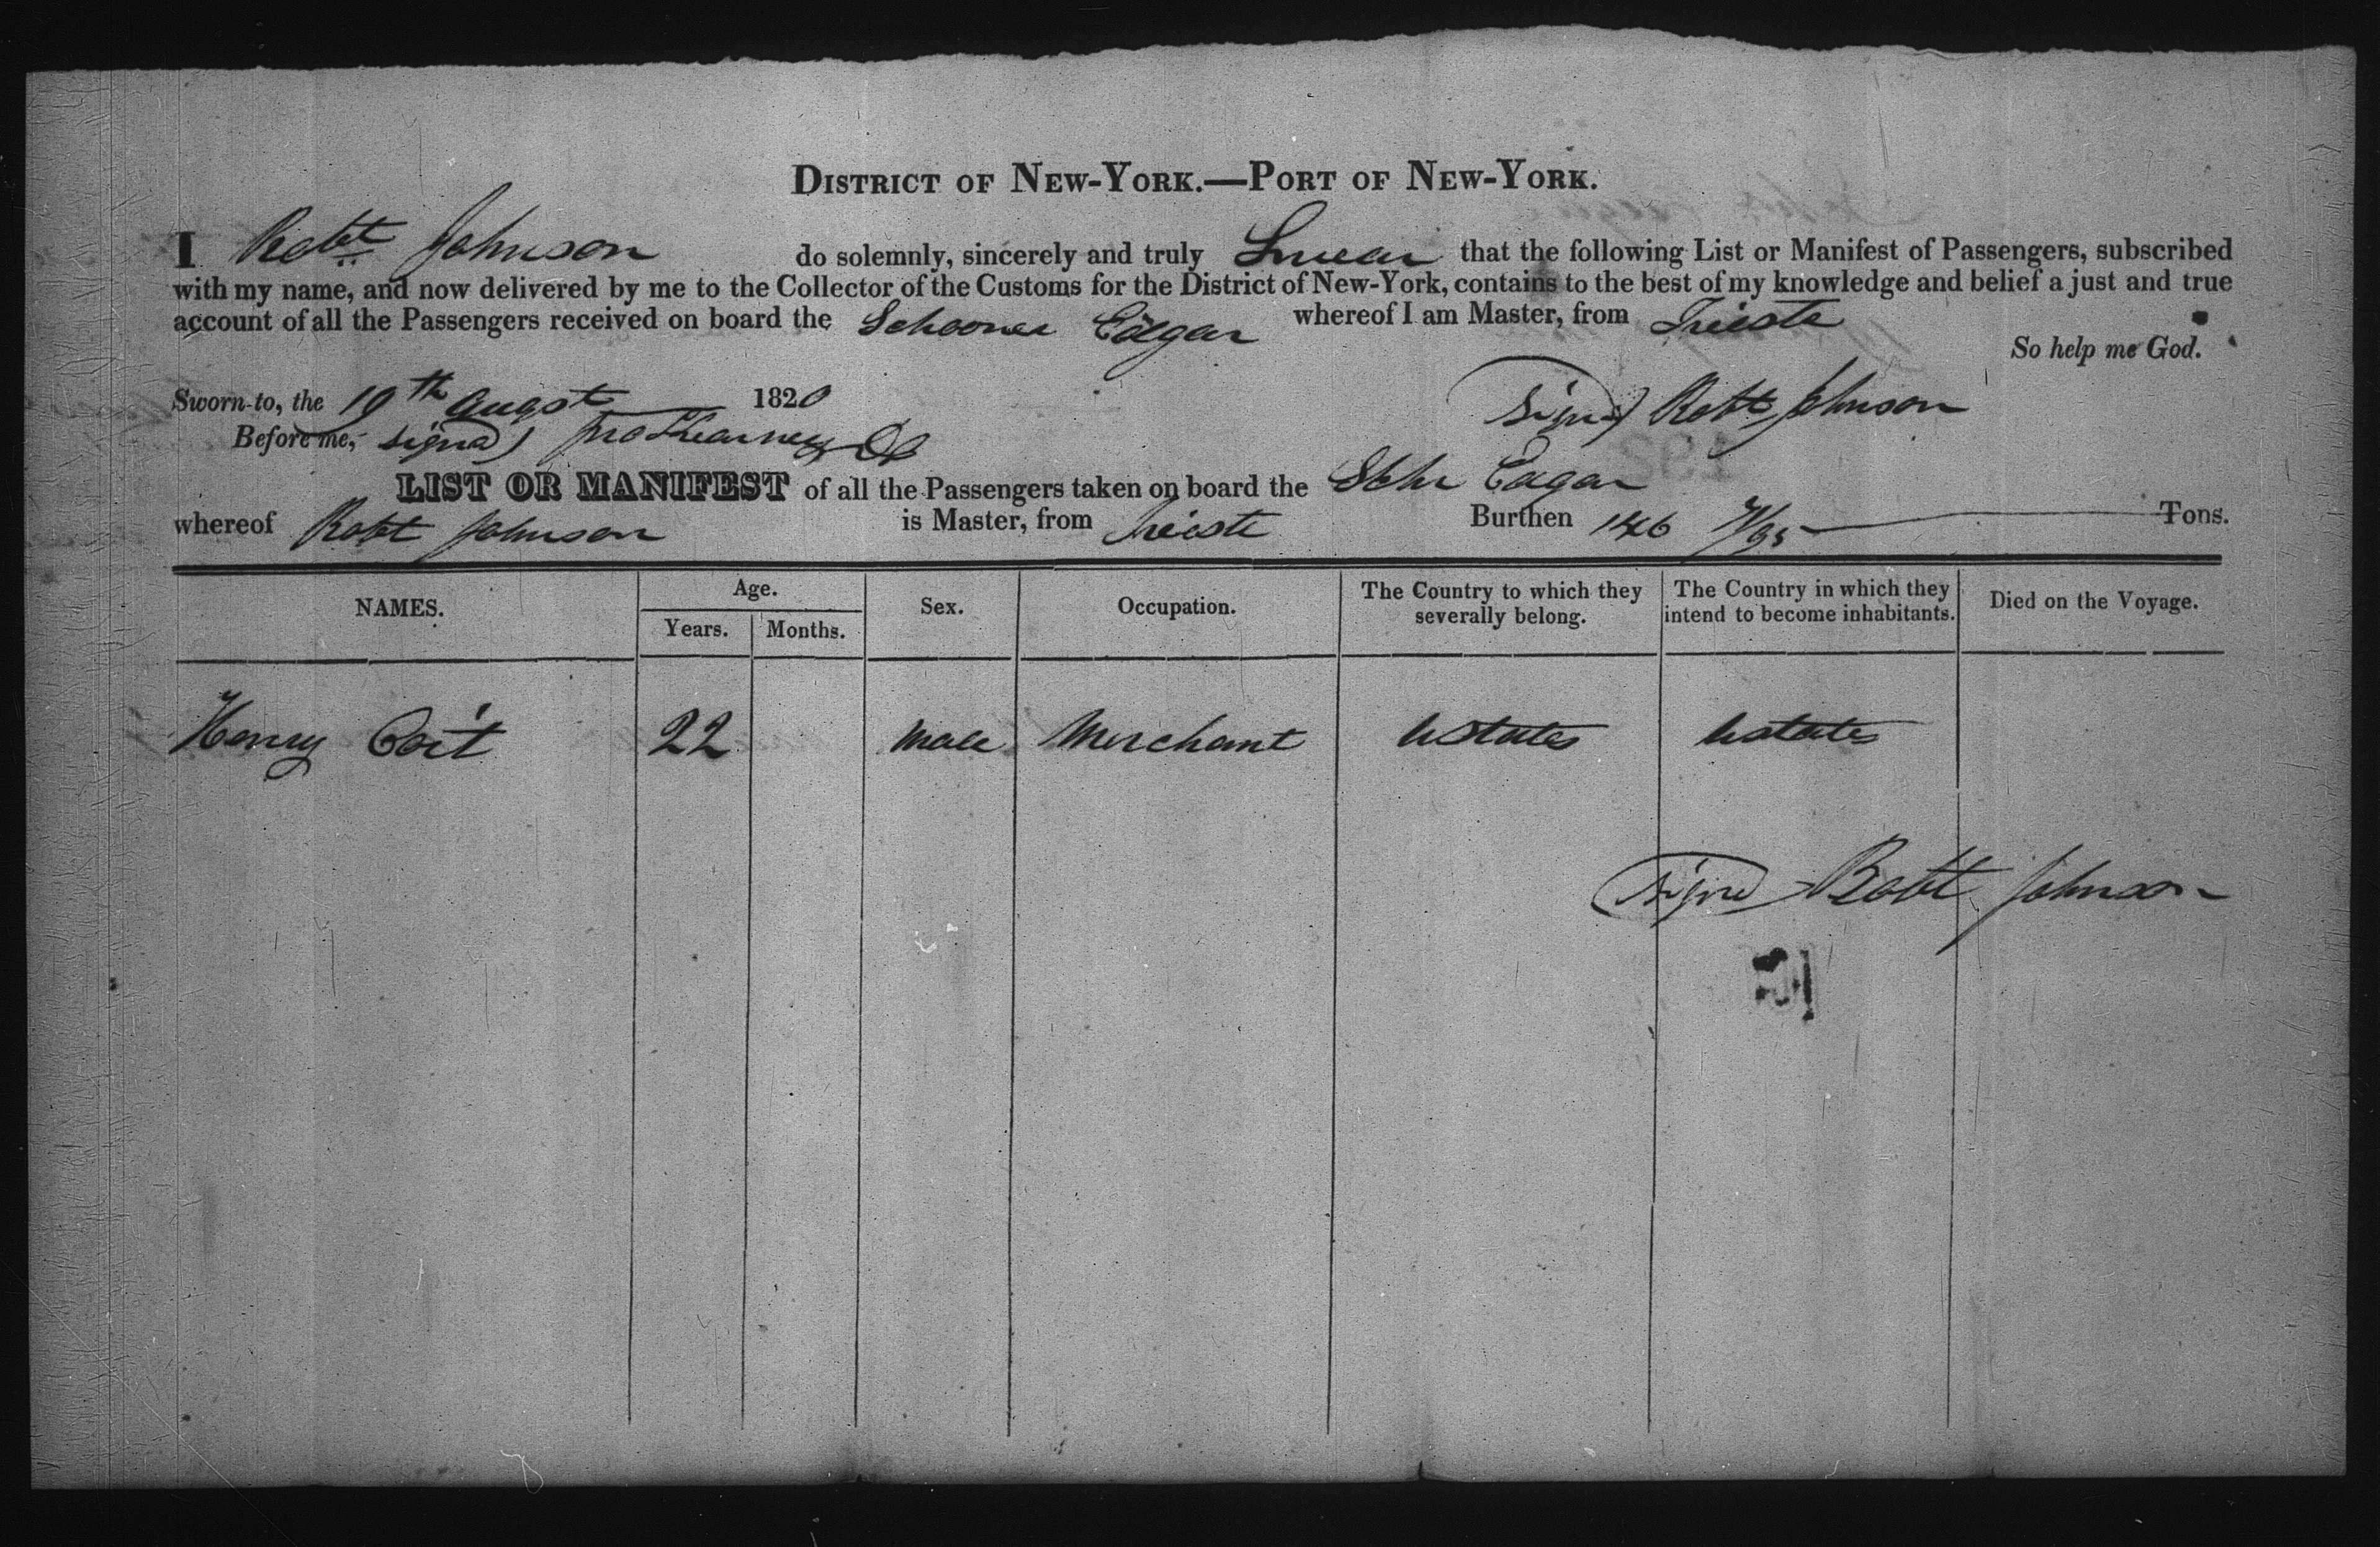 DISTRICT OF NEW-YORK.—PORT OF NEW-YORK.
I Robt Johnson do solemnly, sincerely and truly Swear that the following List or Manifest of Passengers, subscribed
with my name, and now delivered by me to the Collector of the Customs for the District of New-York, contains to the best of my knowledge and belief a just and true
account of all the Passengers received on board the Schooner Edgar whereof I am Master, from Trieste
So help me God.
Sworn to, the 19th Augst 1820 Signd Robt Johnson
Before me, signd
LIST OR MANIFEST of all the Passengers taken on board the Schr Edgar
whereof Robt Johnson is Master, from Trieste Burthen 146 71/95 Tons.
NAMES. Age. Years. Months. Sex. Occupation. The Country to which they severally belong. The Country in which they intend to become inhabitants. Died on the Voyage.
Henry Coit 22 Male Merchant UStates UStates
Signd Robt Johnson